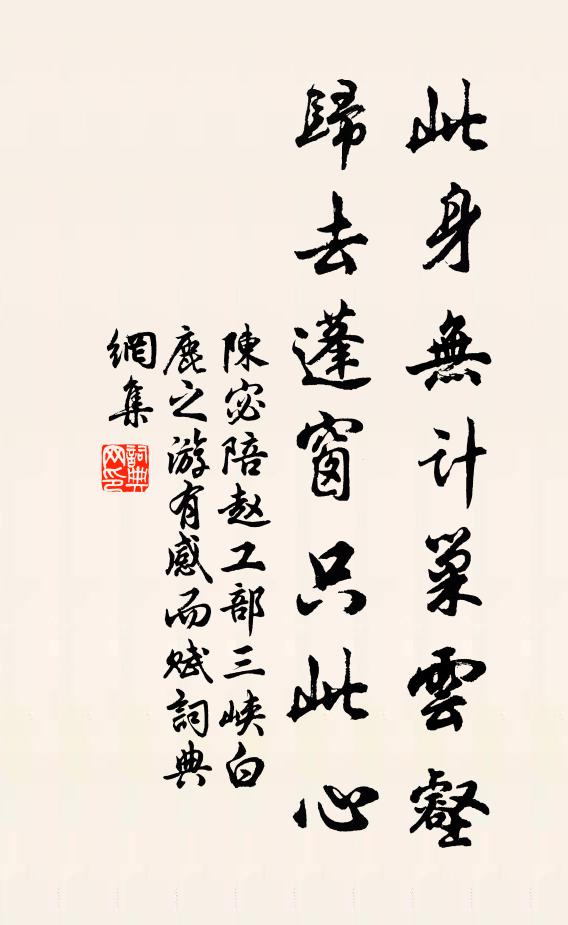 此身無計巢雲壑
歸去蓬窗只此心
陳宓陪赵工部三峽白
鹿之游有感而赋詞典
網集
詞典網印